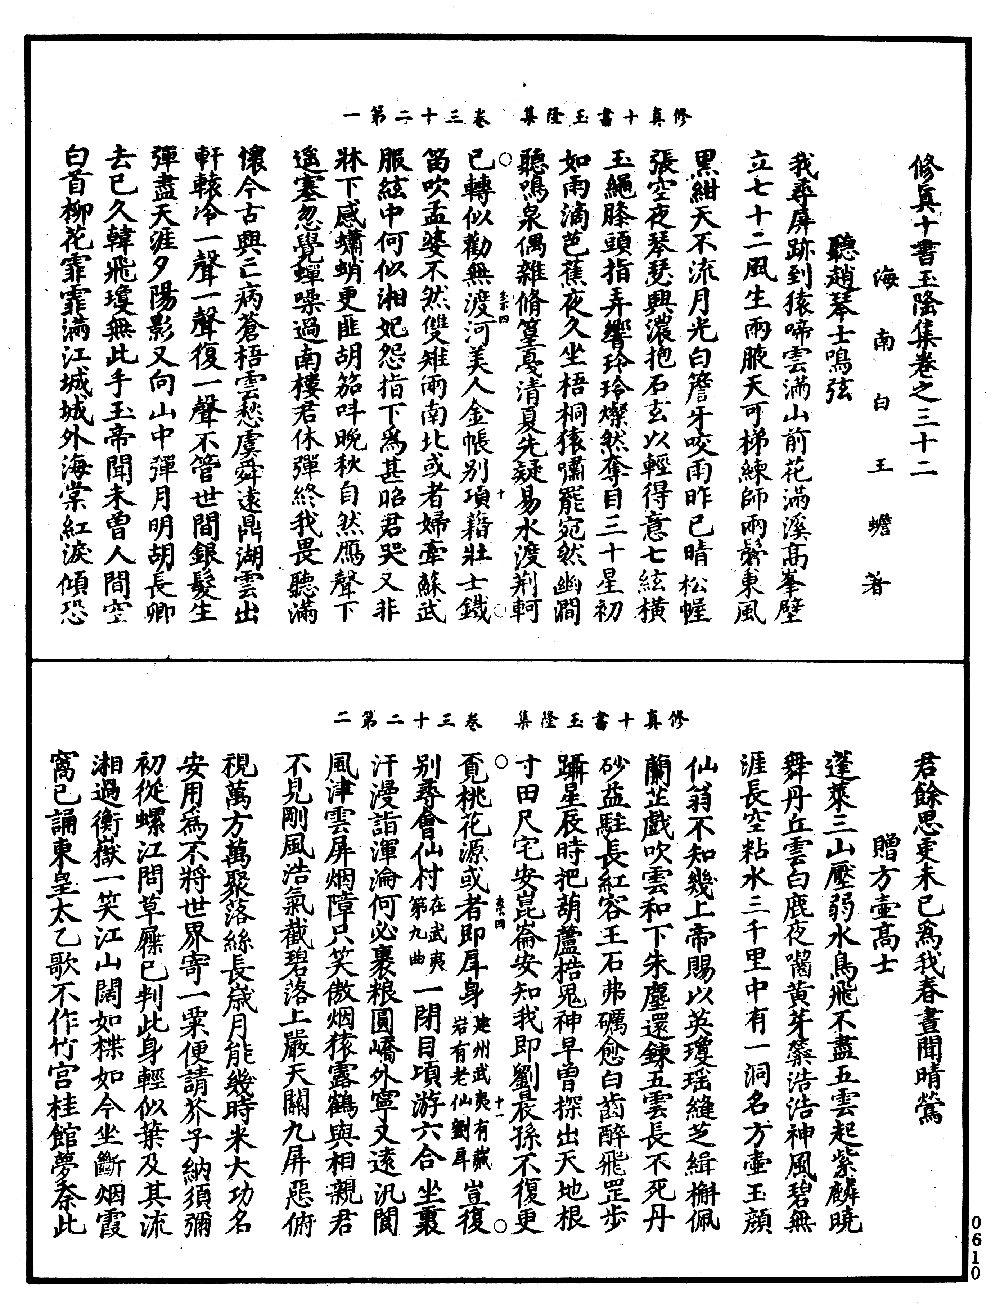 修真十書玉隆集　卷三十二第一
修真十書玉隆集卷之三十二
海南白玉蟾著
聽趙琴士鳴弦
我尋屏跡到猿啼雲滿山前花滿溪高峯壁
立七十二風生兩腋天可梯練師兩鬢東風
黑紺天不流月光白簷牙咬雨昨已晴松幄
張空夜琴瑟興濃抱石玄以輕得意七絃橫
玉繩膝頭指弄響玲玲燦然奪目三十星初
如雨滴芭蕉夜久坐梧桐猿嘯罷宛然幽澗
聽鳴泉偶雜脩篁憂清夏先疑易水渡荆軻
已轉似勸無渡河美人金帳别項籍壯士鐵
笛吹孟婆不然雙雉雨南北或者婦牽蘇武
服絃中何似湘妃怨指下爲甚昭君哭又非
牀下感蟏蛸更匪胡笳吽晚秋自然鴈聲下
遥塞忽覺蟬噪過南樓君休彈終我畏聽滿
懷今古興亡病蒼梧雲愁虞舜遠鼎湖雲出
軒轅冷一聲一聲復一聲不管世間銀髮生
彈盡天涯夕陽影又向山中彈月明胡長卿
去已久韓飛瓊無此手玉帝聞未曾人間空
白首柳花霏霏滿江城城外海棠紅淚傾恐
修真十書玉隆集　卷三十二第二
君餘思更未已爲我春晝聞晴鶯
贈方壷高士
蓬萊三山壓弱水鳥飛不盡五雲起紫麟曉
舞丹丘雲白鹿夜嚙黄芽蘂浩浩神風碧無
涯長空粘水三千里中有一洞名方壷玉顔
仙翁不知幾上帝賜以英瓊瑶縫芝緝槲佩
蘭芷戲吹雲和下朱塵還鍊五雲長不死丹
砂益駐長紅容王石弗礪愈白齒醉飛罡步
躡星辰時把葫蘆楛鬼神早曾探出天地根
寸田尺宅安崑崙安知我即劉晨孫不復更
覓桃花源或者即辱身建州武夷有藏岩有老仙劉尋豈復
别尋會仙村在武夷第九曲一閉目頃游六合坐裏
汗漫詣渾淪何必裹粮圓嶠外寧又遠汎閬
風津雲屏烟障只笑傲烟猿露鶴與相親君
不見剛風浩氣截碧落上嚴天關九屏惡俯
視萬方萬聚落絲長歲月能幾時米大功名
安用爲不將世界寄一粟便請芥子納須彌
初從螺江問草屩已判此身輕似葉及其流
湘過衡嶽一笑江山闊如楪如今坐斷烟霞
窩已誦東皇太乙歌不作竹宮桂館夢奈此
0610